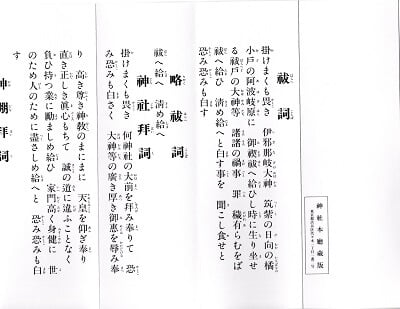 神社本廳蔵版
祓詞
掛けまくも畏き 伊邪那岐大神 筑紫の日向の橘
小戸の阿波岐原に 御禊祓へ給ひし時に生り坐せ
る祓戸の大神等 諸諸の禍事 罪 穢有らむをば
祓へ給ひ 清め給へと白す事を 聞こし食せと
恐み恐みも白す
略祓詞
祓へ給へ 清め給へ
神社拜詞
掛けまくも畏き 何神社の大前を拜み奉りて 恐
み恐みも白さく 大神等の廣き厚き御惠を辱み奉
り 高き尊き神教のまにまに 天皇を仰ぎ奉り
直き正しき眞心もちて 誠の道に違ふことなく
負ひ持つ業に勵ましめ給ひ 家門高く身健に 世
のため人のために盡さしめ給へと 恐み恐みも白
す
神棚拜詞